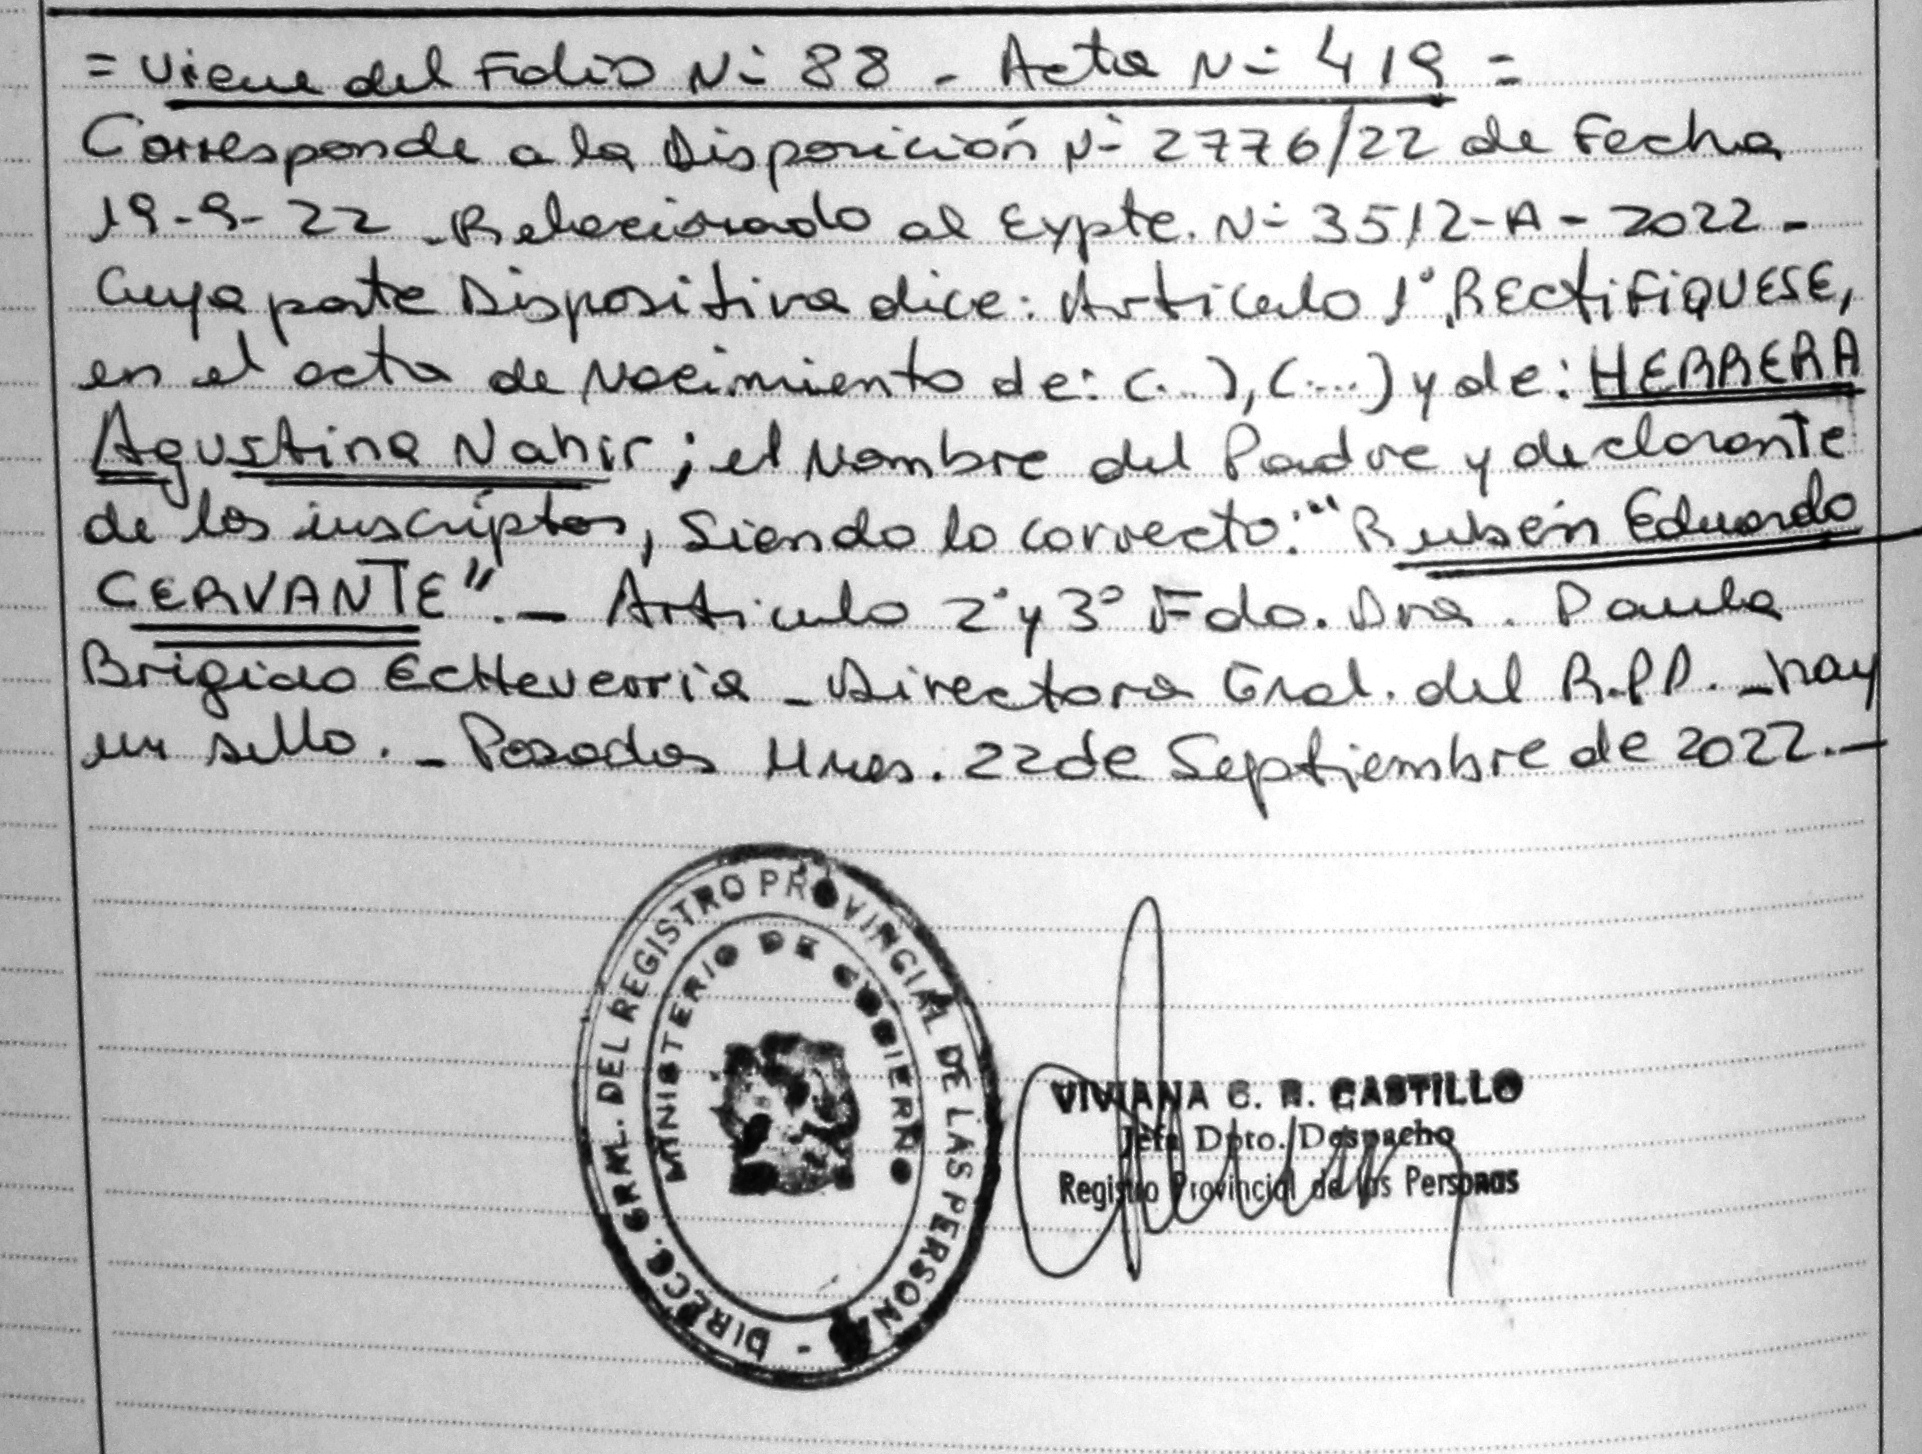 = Viene del Folio Nº 88 - Acta Nº 419 =
Corresponde a la Disposición Nº 2776/22 de Fecha
19-9-22 - Relacionado al Expte. Nº 3512-A-2022 -
Cuya parte Dispositiva dice: Artículo 1° RECTIFIQUESE,
en el acta de Nacimiento de: (...), (....) y de: HERRERA
Agustina Nahir; el Nombre del Padre y declarante
de los inscriptos, Siendo lo correcto: "Rubén Eduardo
CERVANTE". - Artículo 2° y 3° Fdo. Dra. Paula
Brigido Echeverria - Directora Gral. del R.P.P. - hay
un sello. - Posadas Mnes. 22 de Septiembre de 2022. -
DIRECC. GRAL. DEL REGISTRO PROVINCIAL DE LAS PERSONAS -
MINISTERIO DE GOBIERNO
VIVIANA C. R. CASTILLO
Jefa Dpto. Despacho
Registro Provincial de las Personas